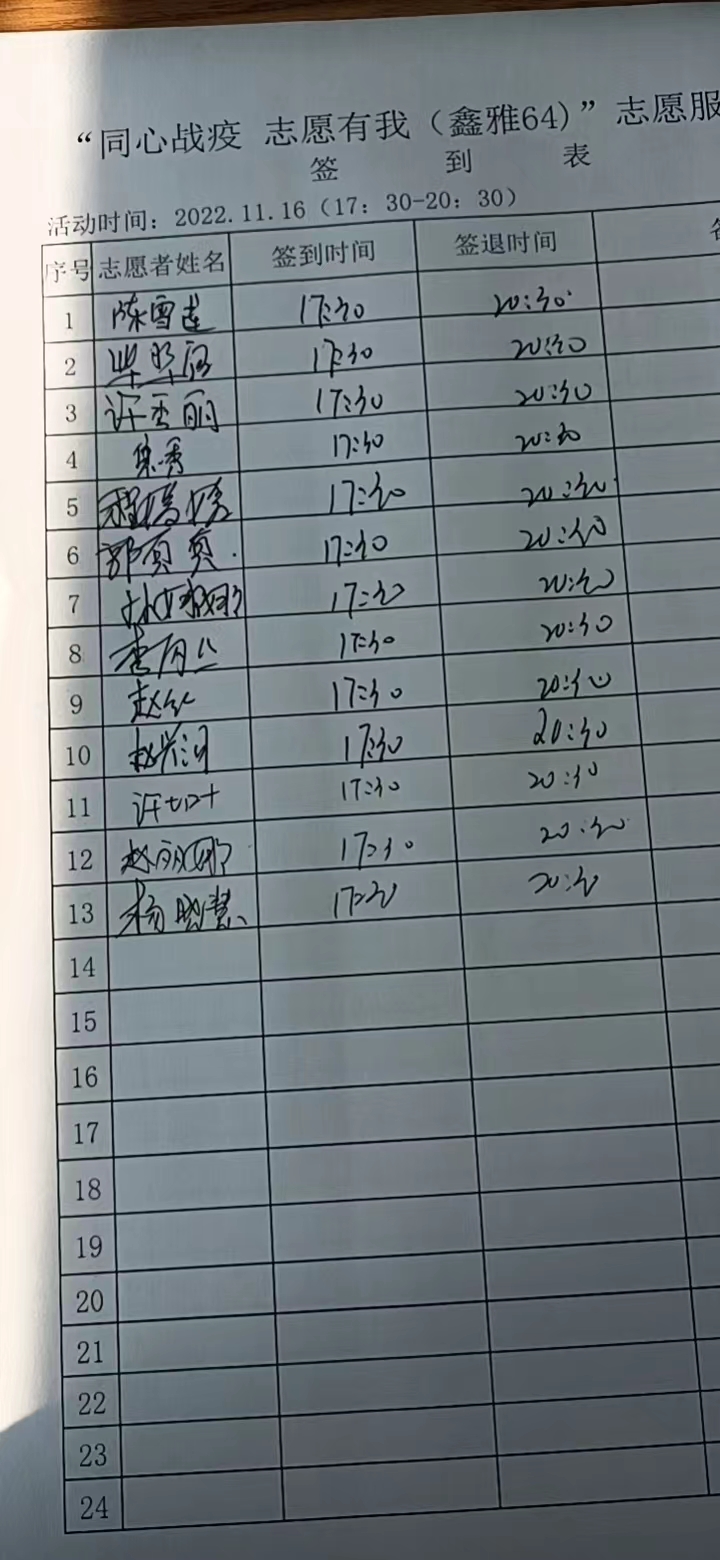 “同心战疫 志愿有我（鑫雅64）”志愿服
签 到 表
活动时间：2022.11.16（17：30-20：30）
序号 志愿者姓名 签到时间 签退时间
1 陈雪莲 17:30 20:30
2 17:30 20:30
3 许秀丽 17:30 20:30
4 17:30 20:30
5 程 17:30 20:30
6 郭页页 17:30 20:30
7 孙娜 17:30 20:30
8 李 17:30 20:30
9 赵 17:30 20:30
10 赵 17:30 20:30
11 许 17:30 20:30
12 赵丽娜 17:30 20:30
13 杨晓慧 17:30 20:30
14
15
16
17
18
19
20
21
22
23
24